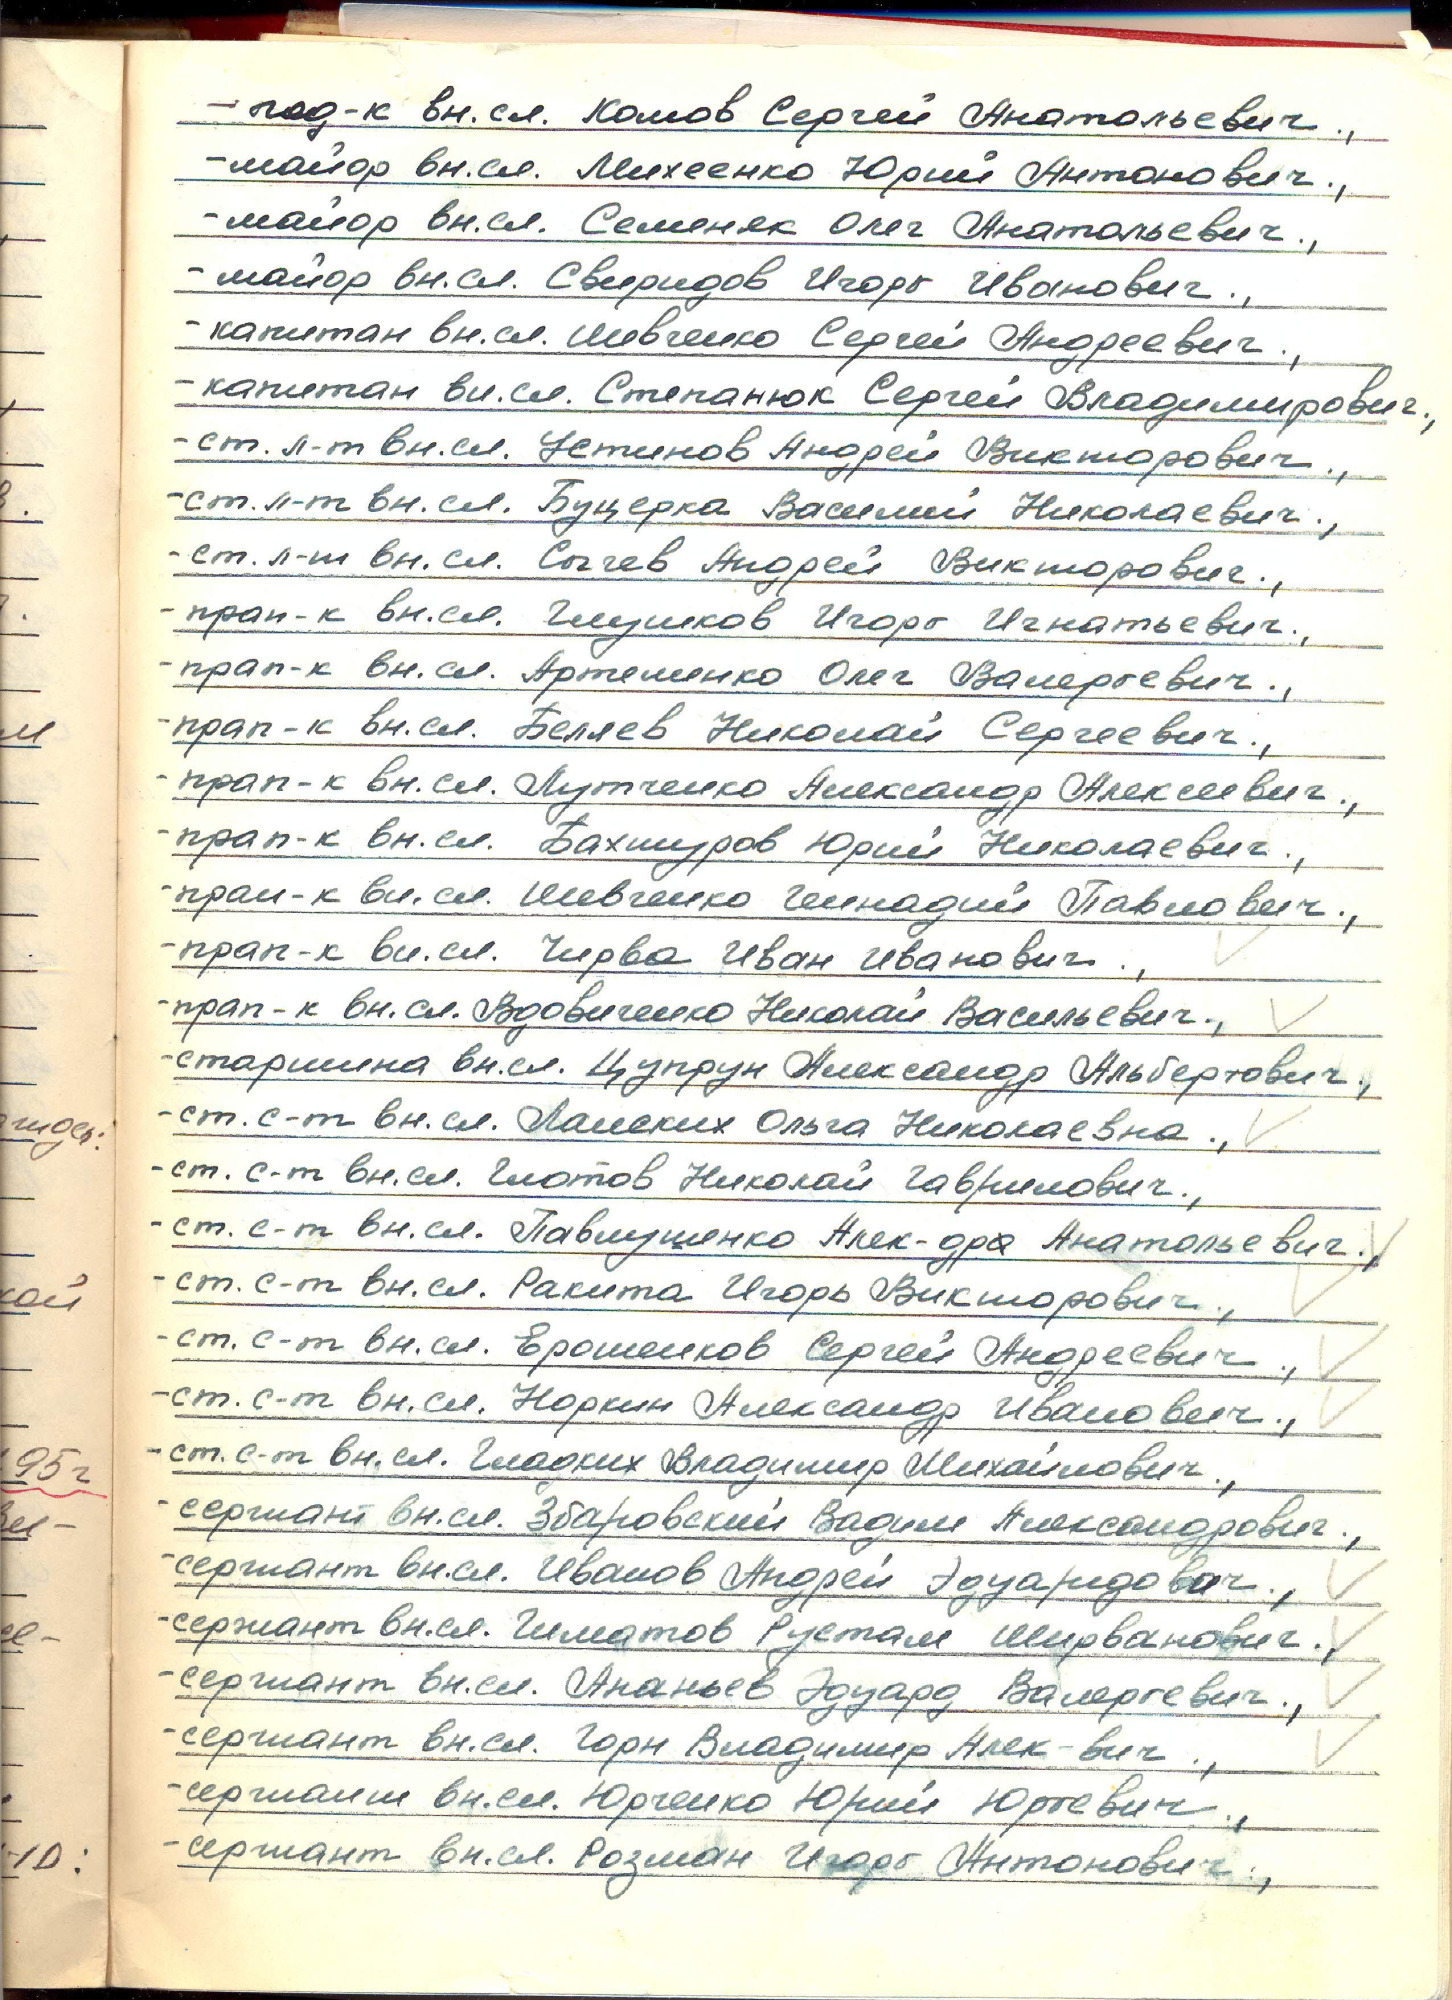 - под-к вн.сл. Комов Сергей Анатольевич.,
- майор вн.сл. Михеенко Юрий Антонович.,
- майор вн.сл. Семеняк Олег Анатольевич.,
- майор вн.сл. Свиридов Игорь Иванович.,
- капитан вн.сл. Шевченко Сергей Андреевич.,
- капитан вн.сл. Степанюк Сергей Владимирович.,
- ст. л-т вн.сл. Устинов Андрей Викторович.,
- ст. л-т вн.сл. Буцерка Василий Николаевич.,
- ст. л-т вн.сл. Сычев Андрей Викторович.,
- прап-к вн.сл. Глушков Игорь Игнатьевич.,
- прап-к вн.сл. Артеменко Олег Валерьевич.,
- прап-к вн.сл. Беляев Николай Сергеевич.,
- прап-к вн.сл. Лутченко Александр Алексеевич.,
- прап-к вн.сл. Бахшуров Юрий Николаевич.,
- прап-к вн.сл. Шевченко Геннадий Павлович.,
- прап-к вн.сл. Чирва Иван Иванович.,
- прап-к вн.сл. Вдовиченко Николай Васильевич.,
- старшина вн.сл. Цупрун Александр Альбертович.,
- ст. с-т вн.сл. Ламских Ольга Николаевна.,
- ст. с-т вн.сл. Глотов Николай Гаврилович.,
- ст. с-т вн.сл. Павлущенко Алек-дра Анатольевич.,
- ст. с-т вн.сл. Ракита Игорь Викторович.,
- ст. с-т вн.сл. Ерошенков Сергей Андреевич.,
- ст. с-т вн.сл. Норкин Александр Иванович.,
- ст. с-т вн.сл. Гладких Владимир Михайлович.,
- сержант вн.сл. Збаровский Вадим Александрович.,
- сержант вн.сл. Иванов Андрей Эдуардович.,
- сержант вн.сл. Гиматов Рустам Ширванович.,
- сержант вн.сл. Ананьев Эдуард Валерьевич.,
- сержант вн.сл. Горн Владимир Алек-вич.,
- сержант вн.сл. Юрченко Юрий Юрьевич.,
- сержант вн.сл. Розман Игорь Антонович.,